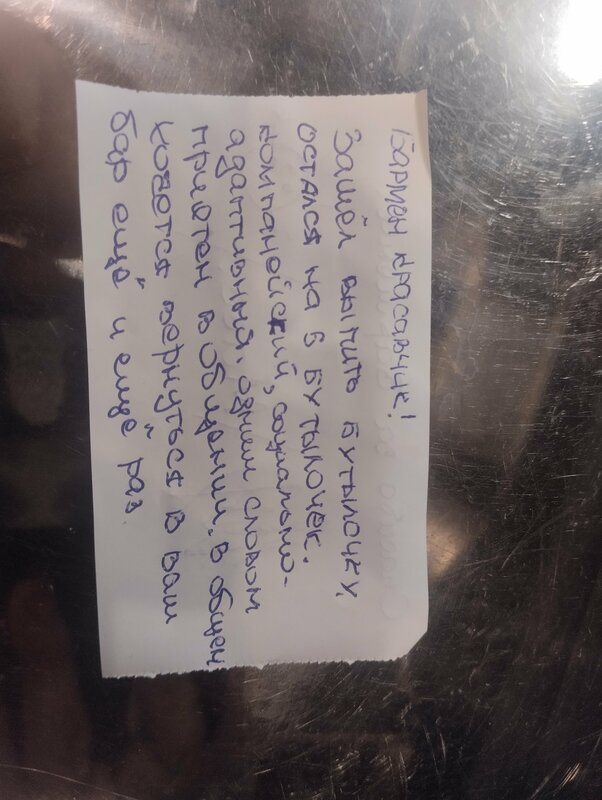 Бармен красавчик!
Зашёл выпить бутылочку,
остался на 5 бутылочек.
компанейский, социально-
адаптивный. одним словом
приятен в общении. в общем
хочется вернуться в ваш
бар ещё и ещё раз